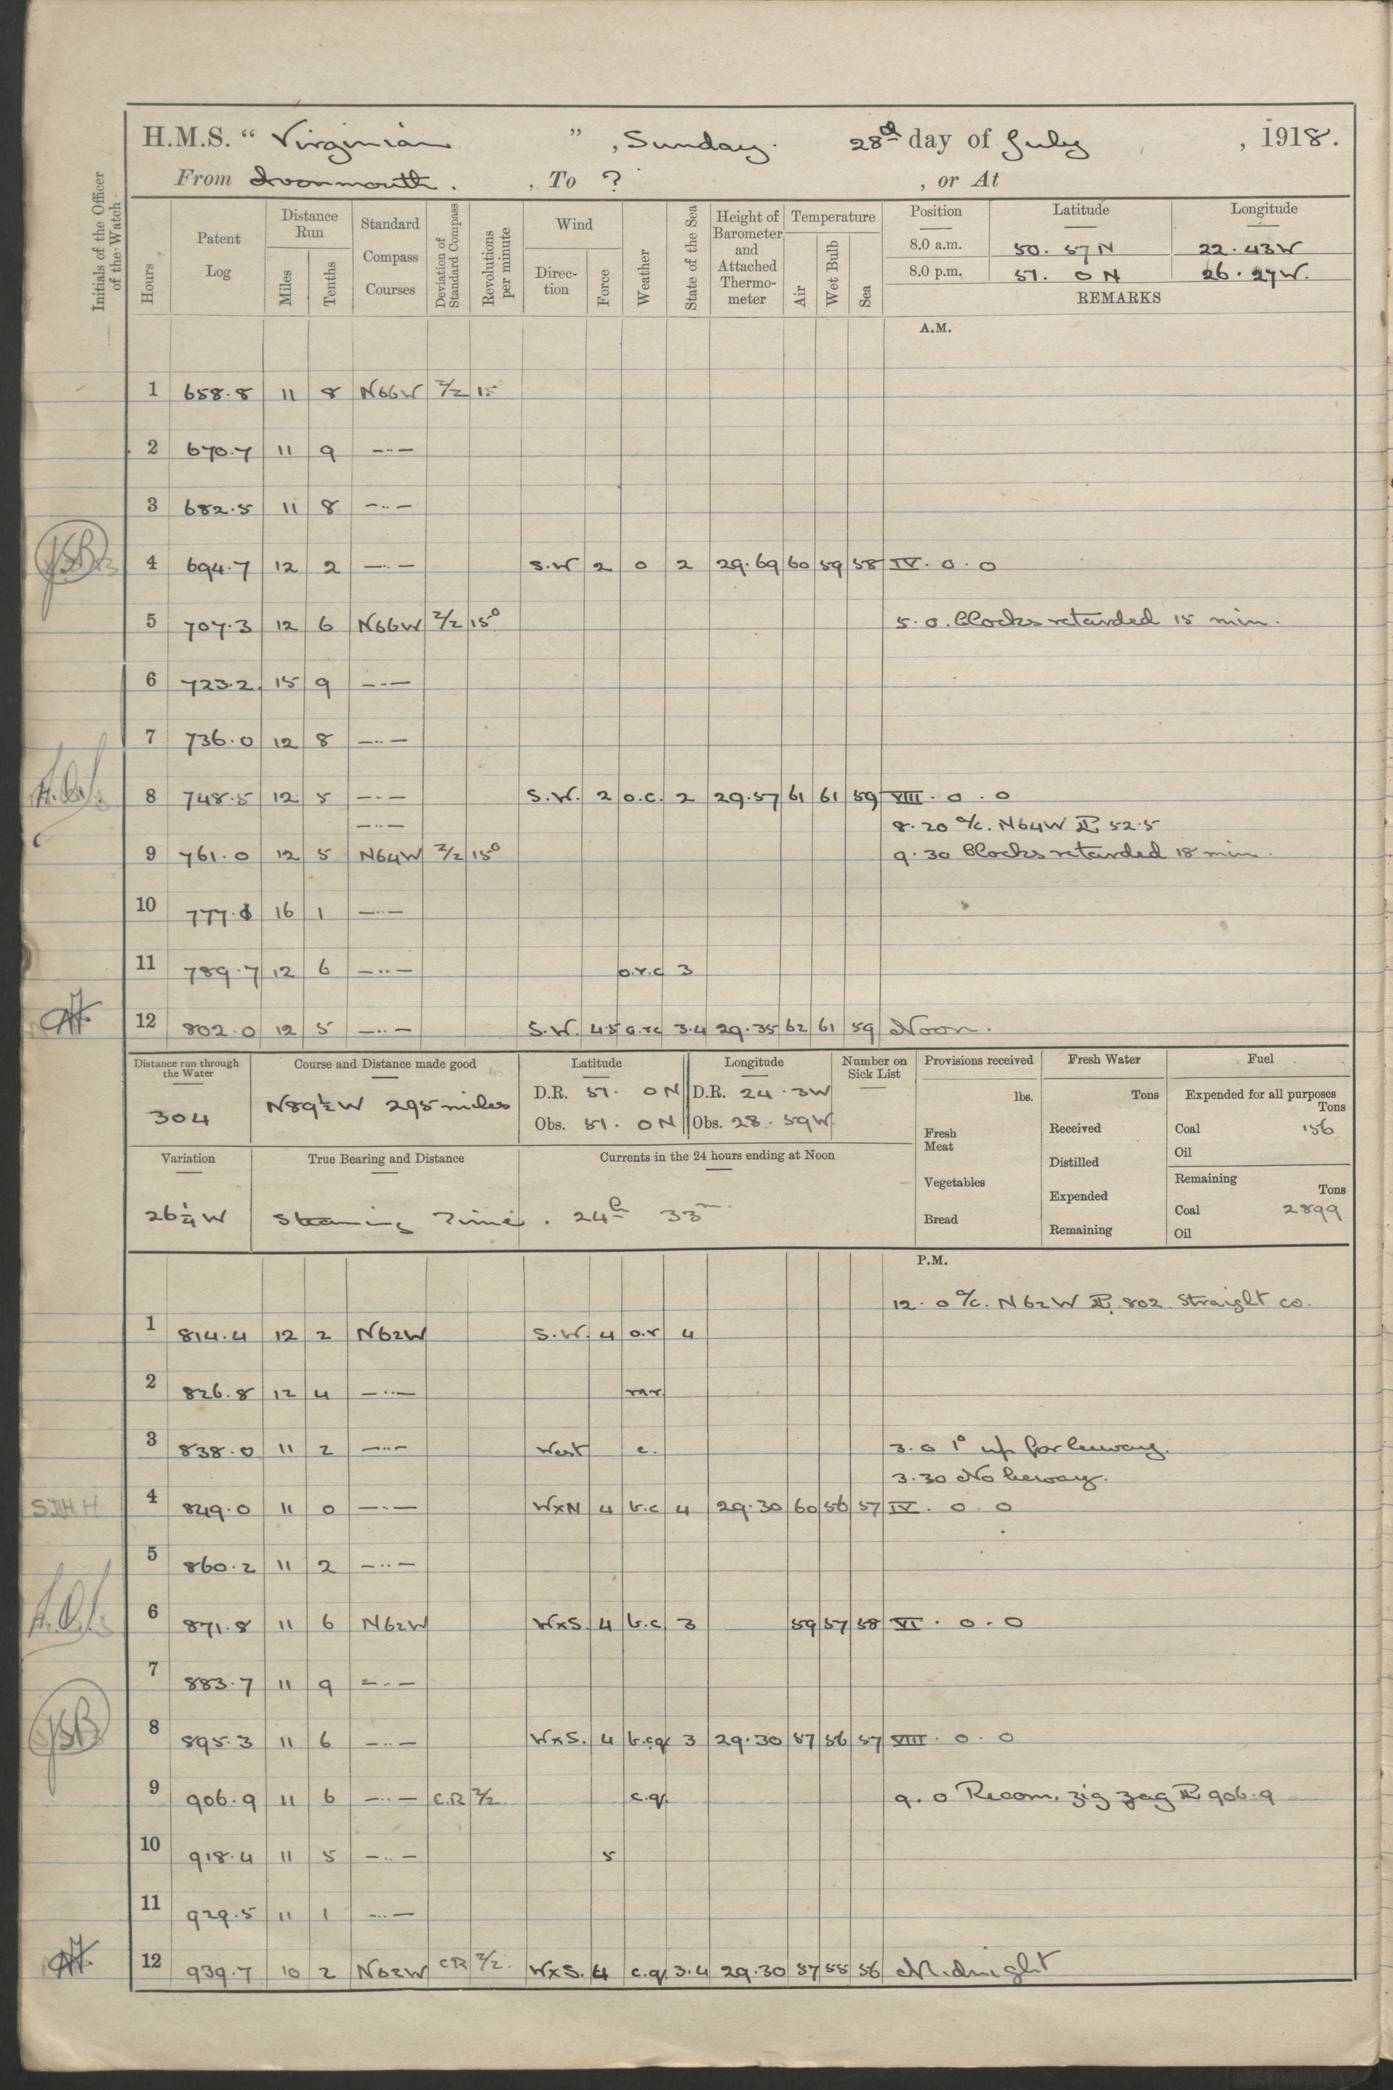 H.M.S. “ Virginian ” , Sunday. 28th day of July , 1918.
From Avonmouth. , To ? , or At
Initials of the Officer of the Watch
Hours
Patent Log
Distance Run
Miles
Tenths
Standard Compass Courses
Deviation of Standard Compass
Revolutions per minute
Wind
Direc-tion
Force
Weather
State of the Sea
Height of Barometer and Attached Thermo-meter
Temperature
Air
Wet Bulb
Sea
Position Latitude Longitude
8.0 a.m. 50. 57 N 22. 43 W
8.0 p.m. 51. 0 N 26. 27 W.
REMARKS
A.M.
1 658.8 11 8 N66W 2/2 15
2 670.7 11 9 —..—
3 682.5 11 8 —..—
4 694.7 12 2 —..— S.W 2 o 2 29.69 60 59 58 IV. 0. 0
5 707.3 12 6 N66W 2/2 15° 5. 0. Clocks retarded 15 min.
6 723.2 15 9 —..—
7 736.0 12 8 —..—
8 748.5 12 5 —..— S.W. 2 o.c. 2 29.57 61 61 59 VIII. 0. 0
—..— 8.20 a/c. N64W PL 52.5
9 761.0 12 5 N64W 2/2 15° 9.30 Clocks retarded 18 min.
10 777.1 16 1 —..—
11 789.7 12 6 —..— o.r.c 3
12 802.0 12 5 —..— S.W. 4.5 o.rc 3.4 29.35 62 61 59 Noon.
Distance run through the Water 304
Course and Distance made good N89½W 295 miles
Latitude D.R. 51. 0 N Obs. 51. 0 N
Longitude D.R. 24. 3W Obs. 28. 59W
Number on Sick List
Provisions received lbs.
Fresh Meat
Vegetables
Bread
Fresh Water Tons
Received
Distilled
Expended
Remaining
Fuel
Expended for all purposes Tons
Coal 156
Oil
Remaining Tons
Coal 2899
Oil
Variation 26¼W
True Bearing and Distance
Currents in the 24 hours ending at Noon
Steaming Time. 24h 33m.
P.M.
12. 0 a/c. N62W PL 802 Straight co.
1 814.4 12 2 N62W S.W. 4 o.r 4
2 826.8 12 4 —..—
3 838.0 11 2 —..— West c. 3. 0 1° up for leeway.
3.30 No leeway.
4 849.0 11 0 —..— WxN 4 b.c 4 29.30 60 56 57 IV. 0. 0
5 860.2 11 2 —..—
6 871.8 11 6 N62W WxS. 4 b.c 3 59 57 58 VI. 0. 0
7 883.7 11 9 —..—
8 895.3 11 6 —..— WxS. 4 b.cq 3 29.30 57 56 57 VIII. 0. 0
9 906.9 11 6 —..— C.R 2/2. c.q. 9. 0 Recom. zig zag PL 906.9
10 918.4 11 5 —..— 5
11 929.5 11 1 —..—
12 939.7 10 2 N62W CR 2/2. WxS. 4 c.q. 3.4 29.30 57 55 56 Midnight